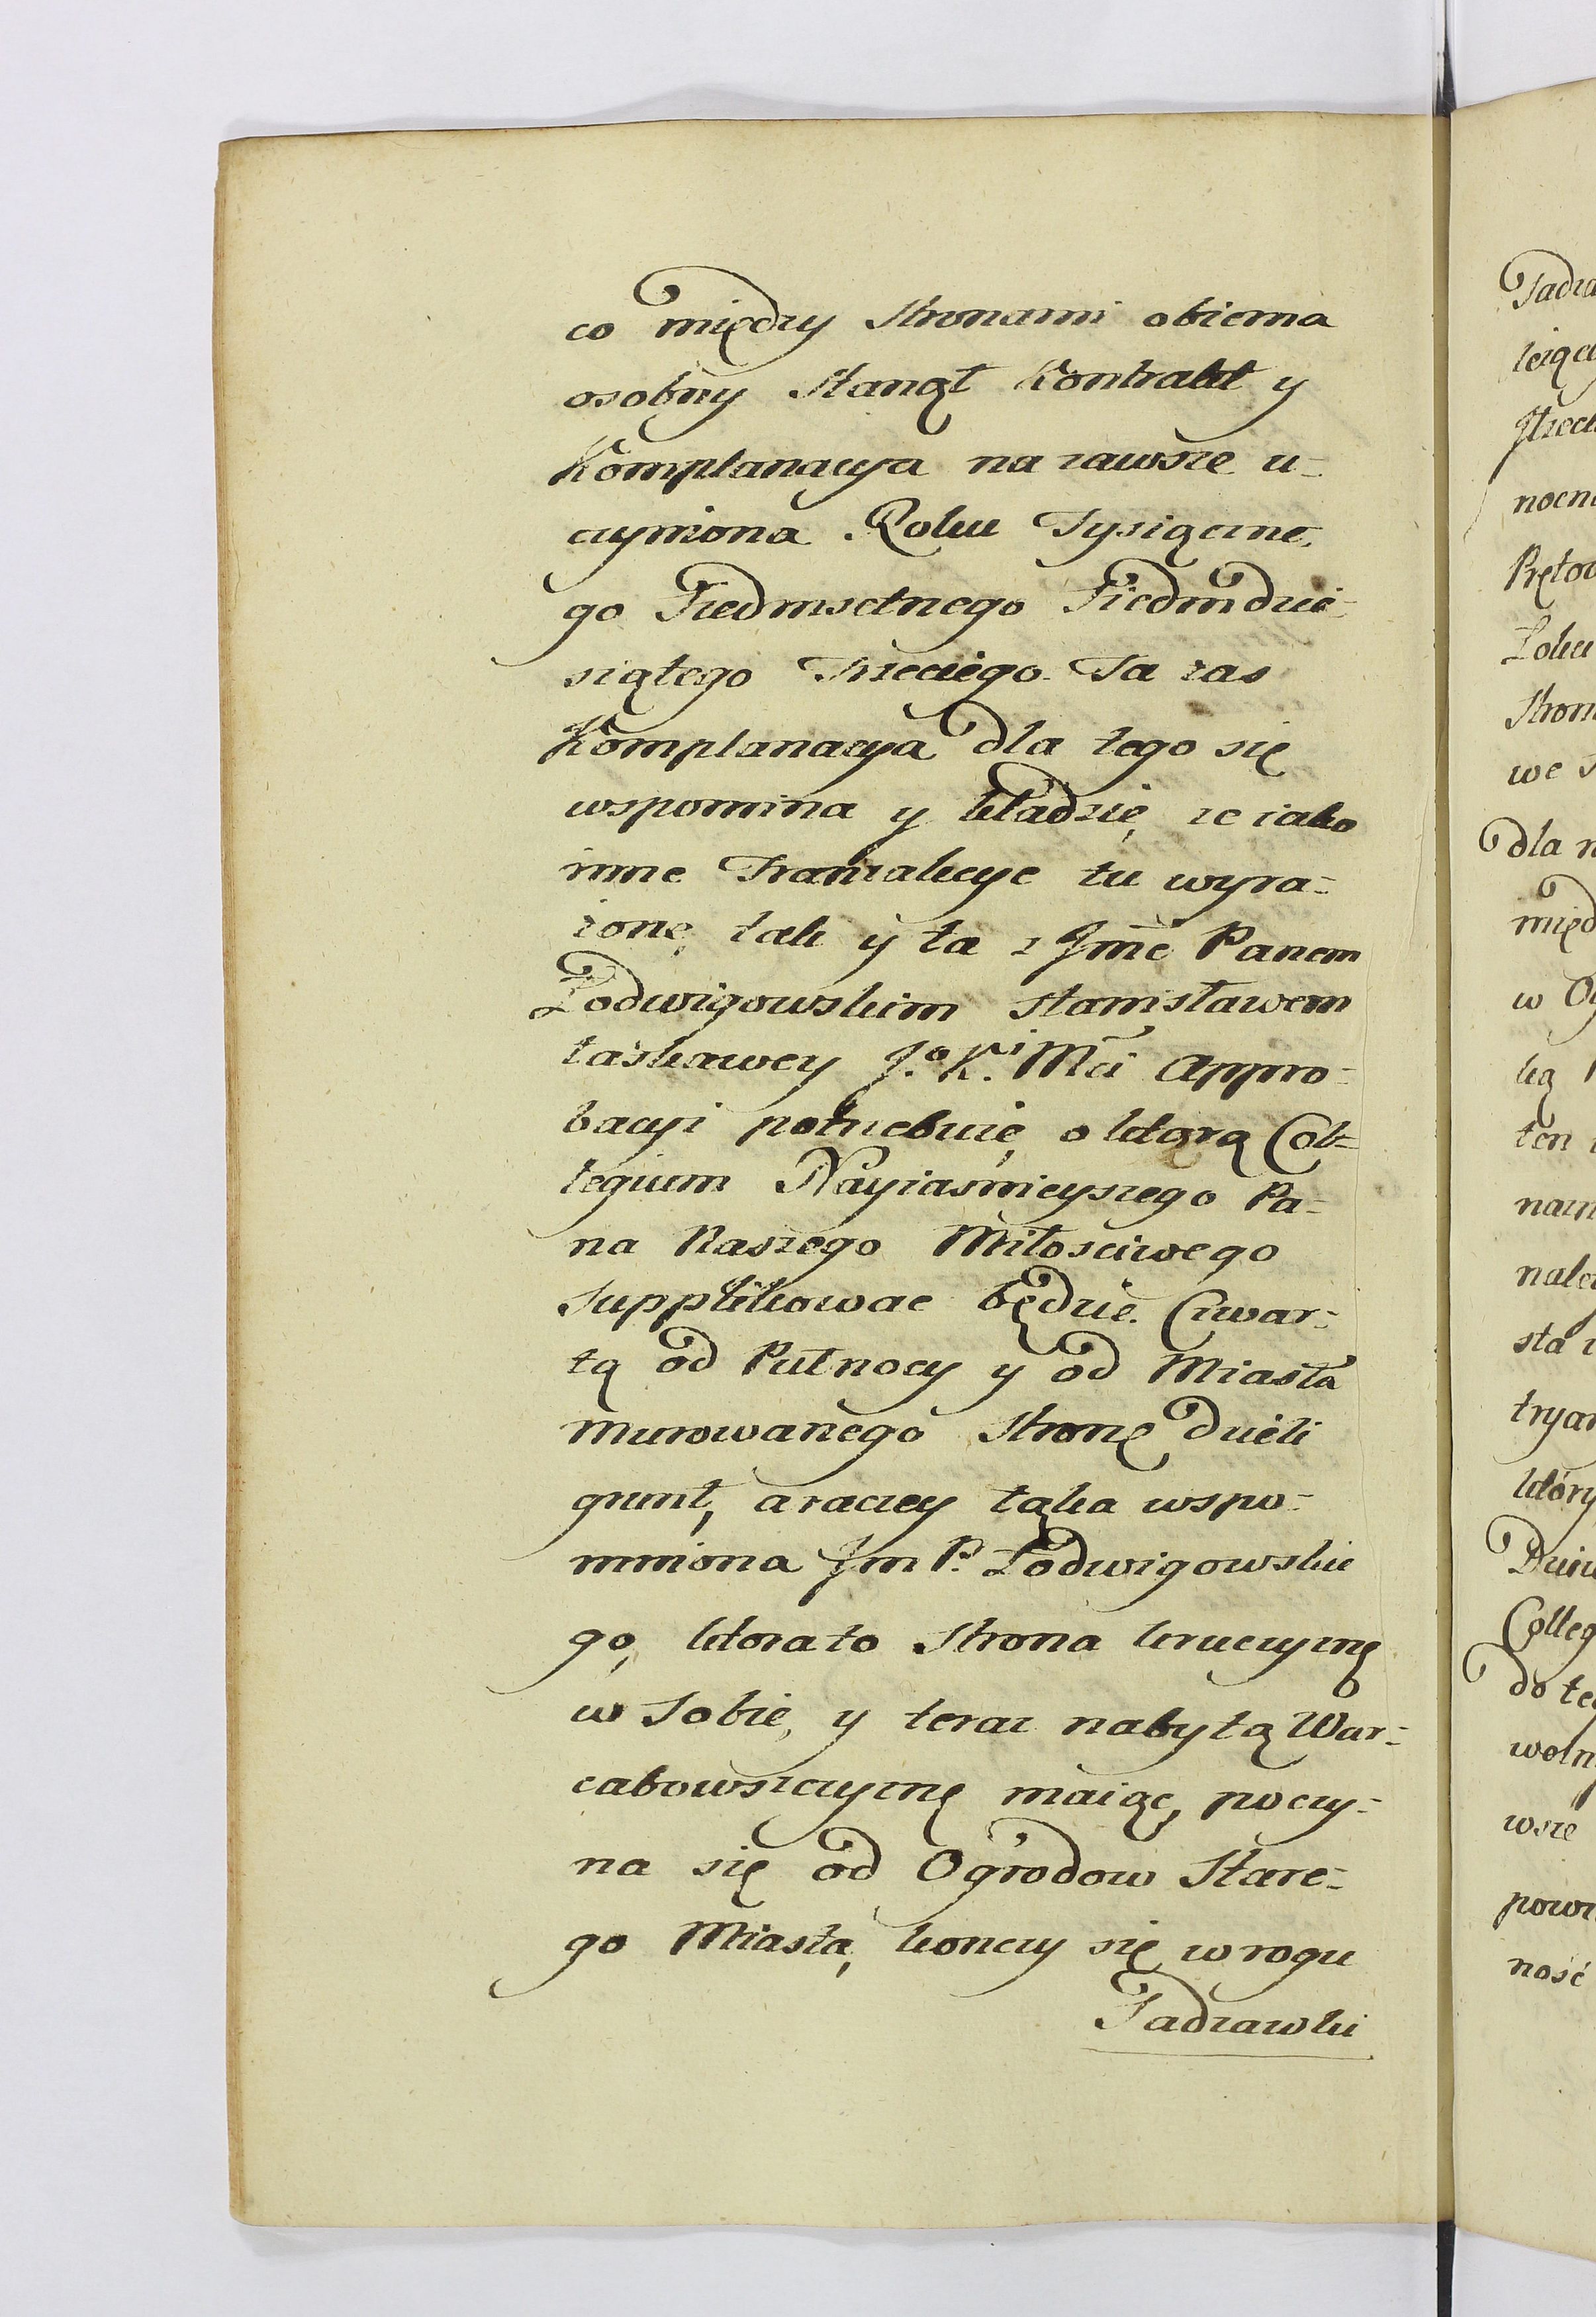 co między stronami obiema
osobny stanął Kontrakt y
Komplanacya na zawsze u-
czyniona Roku Tysiączne-
go Siedmsetnego Siedmdzie-
siątego Trzeciego. Ta zas
Komplanacya dla tego się
wspomina y kładzie, ze iako
inne Tranzakcye tu wyra-
żone, tak y ta z Jmć Panem
Lodwigowskim Stanisławem
łaskawey J.o K.i Mci Appro-
bacyi potrzebuie, o ktorą Col-
legium Nayiaśnieyszego Pa-
na Naszego Miłosciwego
Supplikowac będzie. Czwar-
tą od Pułnocy y od Miasta
murowanego stronę dzieli
grunt, a raczey łąka wspo-
mniona Jm P. Lodwigowskie
go, ktora to strona kruczyznę
w Sobie, y teraz nabytą War-
cabowszczyznę maiąc, poczy-
na się od Ogrodow Stare-
go Miasta, konczy się w rogu
Sadzawki
Sadza
nocn
Stron
we
dla n
międ
w Og
ką
ten
sta
któny
Colleg
wsze
ność